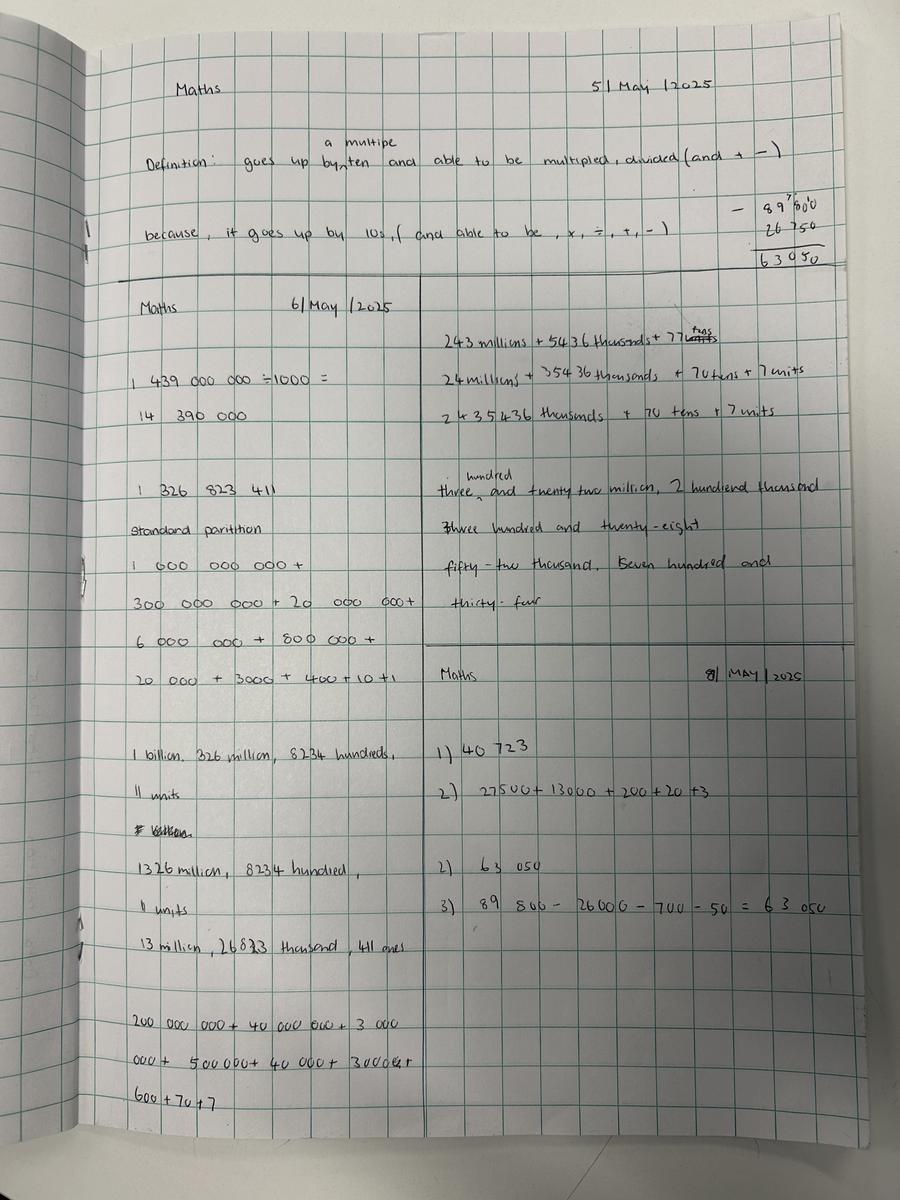 Maths
5/ May /2025
a multipe
Definition: goes up by ten and able to be multipled, divided (and + -)
because, it goes up by 10s, ( and able to be , x, ÷, +, - )
- 89 800
26 750
63 050
Maths 6/May/2025
1 439 000 000 ÷1000 =
14 390 000
1 326 823 411
Standard paritition
1 000 000 000 +
300 000 000 + 20 000 000+
6 000 000 + 800 000 +
20 000 + 3000 + 400 + 10 +1
1 billion, 326 million, 8234 hundreds,
11 units
1326 million, 8234 hundred,
11 units
13 million, 26823 thousand, 411 ones
200 000 000+ 40 000 000 + 3 000
000 + 500 000+ 40 000+ 3000
600 + 70 +7
243 millions + 5436 thousands + 77 tens
24 millions + 35436 thousands + 70 tens + 7 units
2435436 thousands + 70 tens + 7 units
hundred
three and twenty two million, 2 hundiend thousand
three hundred and twenty-eight
fifty-two thousand. Seven hundred and
thirty-four
Maths 8/ MAY / 2025
1) 40 723
2) 27500+ 13000 + 200 + 20 +3
2) 63 050
3) 89 800 - 26000 - 700 - 50 = 63 050